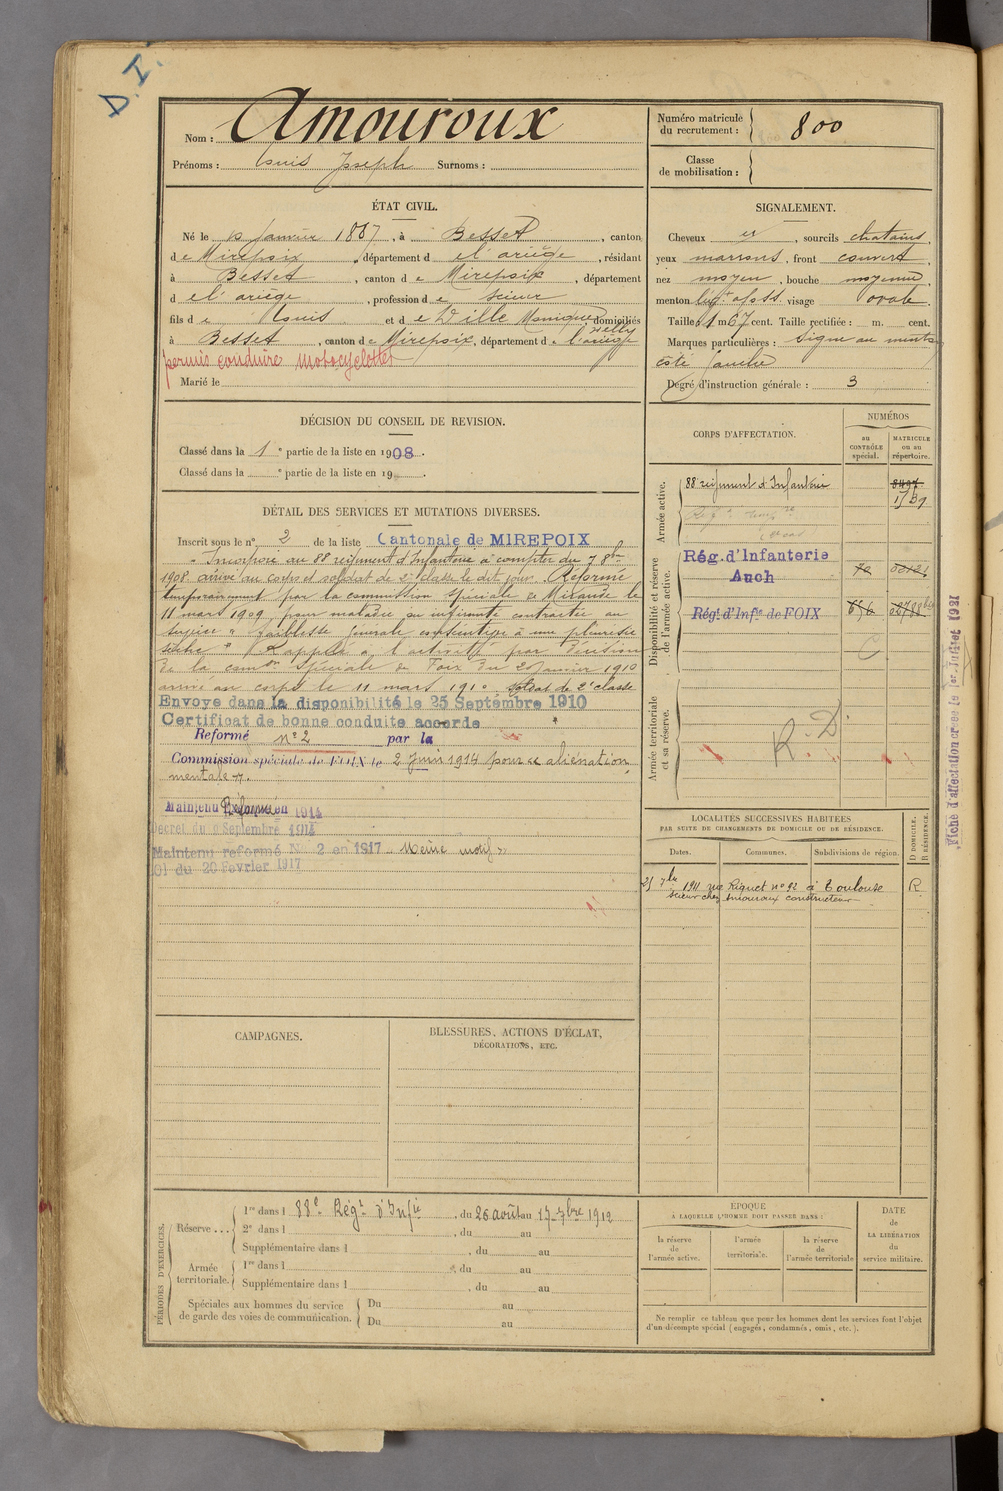 D.I.
Nom : Amouroux
Prénoms : Louis Joseph Surnoms :
Numéro matricule
du recrutement : 800
Classe
de mobilisation :
ÉTAT CIVIL.
Né le janvier 1887, à Besset, canton
de Mirepoix, département d el'ariège, résidant
à Besset, canton d e Mirepoix, département
d el'ariège, profession d e scieur
fils d e Louis et d e Dille Monique, domiciliés
à Besset, canton d e Mirepoix, département d e l'ariège
permis conduire motocyclettes
Marié le
SIGNALEMENT.
Cheveux et, sourcils chatains,
yeux marrons, front couvert,
nez moyen, bouche moyenne
menton visage ovale
Taille : 1 m 67 cent. Taille rectifiée : m. cent.
Marques particulières : Signe au menton
côté gauche
Degré d'instruction générale : 3
DÉCISION DU CONSEIL DE REVISION.
Classé dans la 1e partie de la liste en 1908.
Classé dans la e partie de la liste en 19 .
DÉTAIL DES SERVICES ET MUTATIONS DIVERSES.
Inscrit sous le no 2 de la liste Cantonale de MIREPOIX
Incorporé au 88 régiment d'Infanterie à compter du 7 8bre
1908 arrivé au corps et soldat de 2e classe le dit jour. Réformé
temporairement par la commission spéciale de Mirande le
11 mars 1909 pour maladie ou infirmité contractée au
service " faiblesse générale consécutive à une pleurésie
sèche " Rappelé à l'activité par décision
de la comon spéciale de Foix du janvier 1910
arrivé au corps le 11 mars 1910 soldat de 2e classe
Envoyé dans la disponibilité le 25 Septembre 1910
Certificat de bonne conduite accordé
Reformé no 2 par la
Commission spéciale de FOIX le 2 Juin 1914 pour aliénation
mentale ".
Maintenu Réformé en 1914
Décret du 9 Septembre 1914
Maintenu reformé No 2 en 1917 Même motif
Loi du 20 Fevrier 1917
CORPS D'AFFECTATION.
NUMÉROS
au
CONTRÔLE
spécial.
MATRICULE
ou au
répertoire.
Armée active.
88 régiment d'Infanterie
Disponibilité et réserve
de l'armée active.
Rég. d'Infanterie
Auch
Régt. d'Infie de FOIX
C
Armée territoriale
et sa réserve.
R.D
Fiche d'affectation créée le 1er Juillet 1931
LOCALITÉS SUCCESSIVES HABITÉES
PAR SUITE DE CHANGEMENTS DE DOMICILE OU DE RÉSIDENCE.
D DOMICILE.
R RÉSIDENCE.
Dates. Communes. Subdivisions de région.
25 7bre 1911 rue Riquet no 92 à Toulouse R
scieur chez Amouroux constructeur
CAMPAGNES.
BLESSURES, ACTIONS D'ÉCLAT,
DÉCORATIONS, ETC.
PÉRIODES D'EXERCICES.
Réserve ...
1re dans l 88e Régt d'Infie, du 26 août au 17 7bre 1912
2e dans l , du au
Supplémentaire dans l , du au
Armée
territoriale.
1re dans l , du au
Supplémentaire dans l , du au
Spéciales aux hommes du service
de garde des voies de communication.
Du au
Du au
EPOQUE
À LAQUELLE L'HOMME DOIT PASSER DANS :
la réserve
de
l'armée active.
l'armée
territoriale.
la réserve
de
l'armée territoriale
DATE
de
LA LIBÉRATION
du
service militaire.
Ne remplir ce tableau que pour les hommes dont les services font l'objet
d'un décompte spécial (engagés, condamnés, omis, etc.).